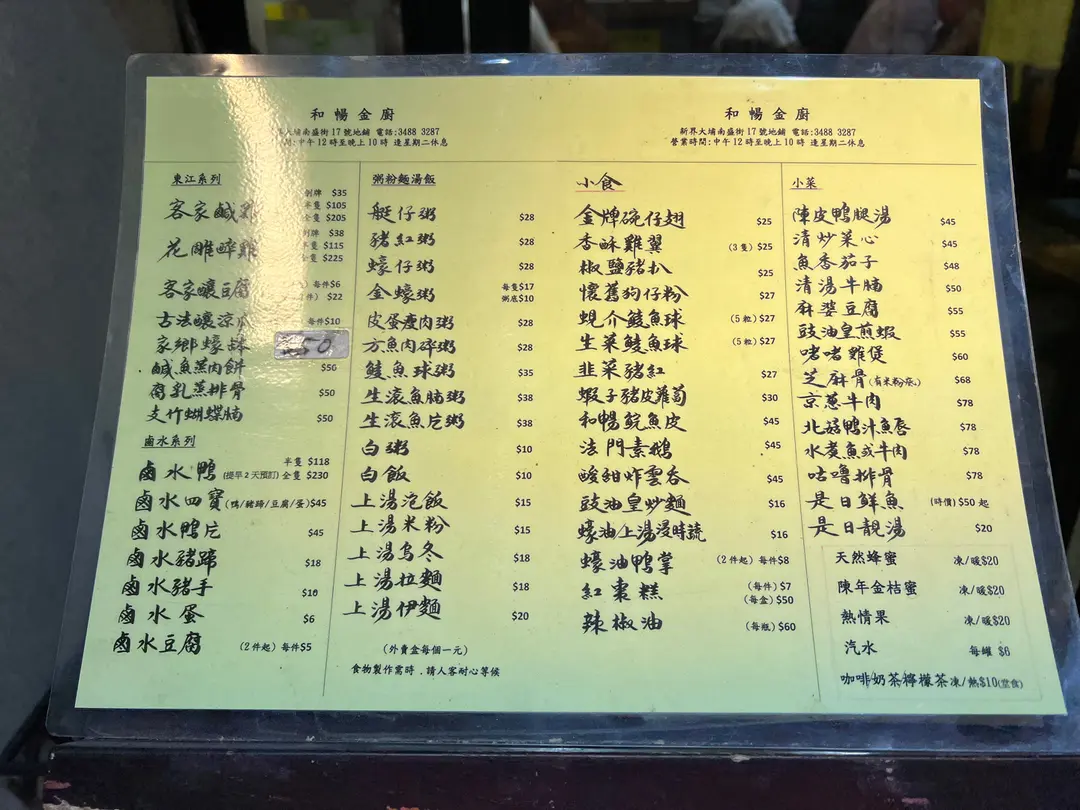 和暢金廚
大埔南盛街17號地鋪 電話:3488 3287
間:中午12時至晚上10時 逢星期二休息
東江系列
例牌 $35
客家鹹雞 半隻 $105
全隻 $205
例牌 $38
花雕醉雞 半隻 $115
全隻 $225
客家釀豆腐 每件$6
件) $22
古法釀涼瓜 每件$10
家鄉蠔 50
鹹魚蒸肉餅 $50
腐乳蒸排骨 $50
支竹蝴蝶腩 $50
鹵水系列
鹵水鴨 (提早2天預訂) 半隻 $118 全隻 $230
鹵水四寶(鴨/豬蹄/豆腐/蛋)$45
鹵水鴨片 $45
鹵水豬蹄 $18
鹵水豬手 $10
鹵水蛋 $6
鹵水豆腐 (2件起) 每件$5
粥粉麵湯飯
艇仔粥 $28
豬紅粥 $28
蠔仔粥 $28
金蠔粥 每隻$17 粥底$10
皮蛋瘦肉粥 $28
方魚肉碎粥 $28
鯪魚球粥 $35
生滾魚腩粥 $38
生滾魚片粥 $38
白粥 $10
白飯 $10
上湯泡飯 $15
上湯米粉 $15
上湯烏冬 $18
上湯拉麵 $18
上湯伊麵 $20
(外賣盒每個一元)
食物製作需時﹐請人客耐心等候
和暢金廚
新界大埔南盛街17號地鋪 電話:3488 3287
營業時間:中午12時至晚上10時 逢星期二休息
小食
金牌碗仔翅 $25
香酥雞翼 (3隻) $25
椒鹽豬扒 $25
懷舊狗仔粉 $27
蜆介鯪魚球 (5粒) $27
生菜鯪魚球 (5粒) $27
韭菜豬紅 $27
蝦子豬皮蘿蔔 $30
和暢鯇魚皮 $45
法門素鵝 $45
酸甜炸雲吞 $45
豉油皇炒麵 $16
蠔油上湯浸時蔬 $16
蠔油鴨掌 (2件起) 每件$8
紅棗糕 (每件) $7 (每盒) $50
辣椒油 (每瓶) $60
小菜
陳皮鴨腿湯 $45
清炒菜心 $45
魚香茄子 $48
清湯牛腩 $50
麻婆豆腐 $55
豉油皇煎蝦 $55
啫啫雞煲 $60
芝麻骨(有米粉底) $68
京蔥牛肉 $78
北菇鴨汁魚唇 $78
水煮魚或牛肉 $78
咕嚕排骨 $78
是日鮮魚 (時價) $50 起
是日靚湯 $20
天然蜂蜜 凍/暖$20
陳年金桔蜜 凍/暖$20
熱情果 凍/暖$20
汽水 每罐 $6
咖啡奶茶檸檬茶 凍/熱$10(堂食)